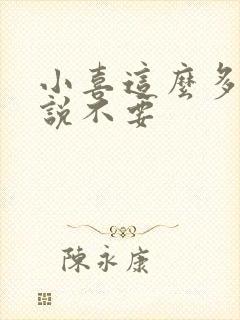 小喜這麼多
說不要
陳永康